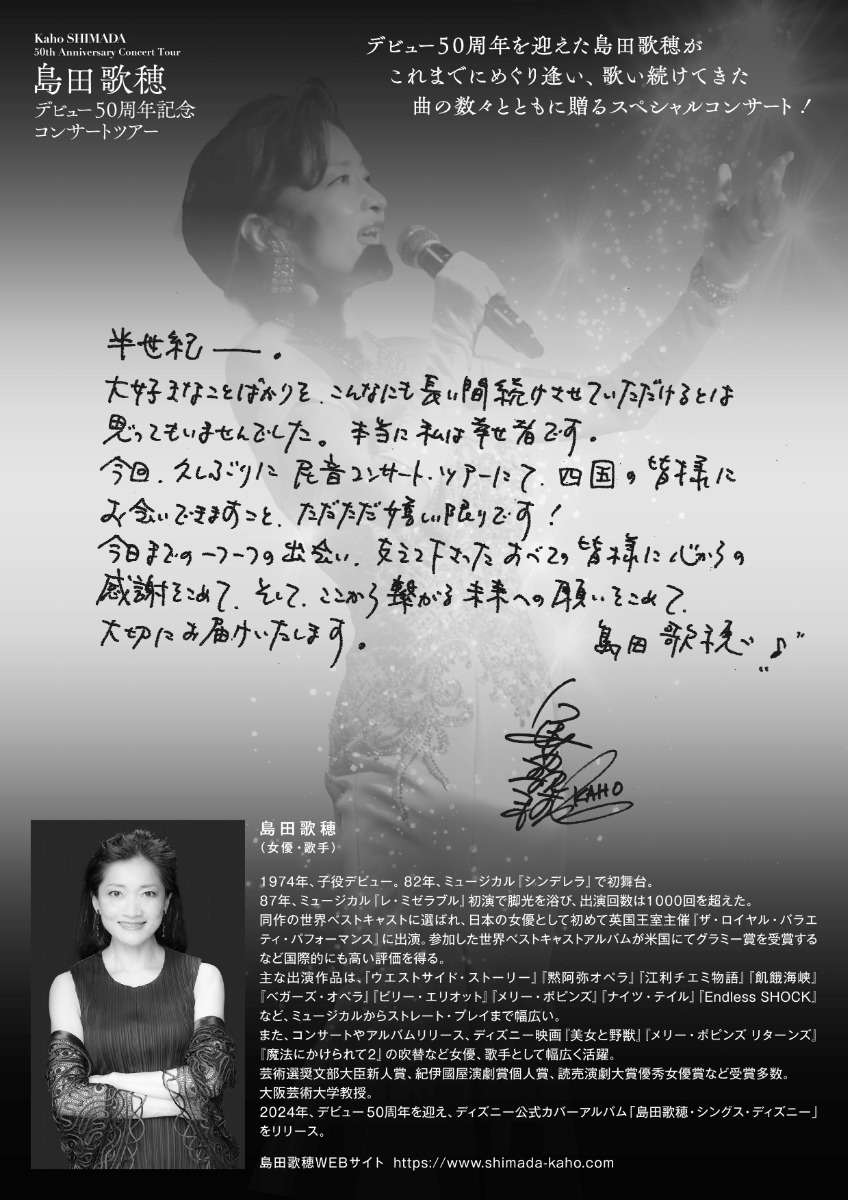 Kaho SHIMADA
50th Anniversary Concert Tour
島田歌穂
デビュー50周年記念
コンサートツアー
デビュー50周年を迎えた島田歌穂が
これまでにめぐり逢い、歌い続けてきた
曲の数々とともに贈るスペシャルコンサート！
半世紀――。
大好きなことばかりを、こんなにも長い間続けさせていただけるとは
思ってもいませんでした。本当に私は幸せ者です。
今回、久しぶりに民音コンサート・ツアーにて、四国の皆様に
お会いできますこと、ただただ嬉しい限りです！
今日までの一つ一つの出会い、支えて下さったすべての皆様に心からの
感謝をこめて、そして、ここから繋がる未来への願いをこめて、
大切にお届けいたします。
島田歌穂♪
KAHO
島田歌穂
（女優・歌手）
1974年、子役デビュー。82年、ミュージカル『シンデレラ』で初舞台。
87年、ミュージカル『レ・ミゼラブル』初演で脚光を浴び、出演回数は1000回を超えた。
同作の世界ベストキャストに選ばれ、日本の女優として初めて英国王室主催『ザ・ロイヤル・バラエ
ティ・パフォーマンス』に出演。参加した世界ベストキャストアルバムが米国にてグラミー賞を受賞する
など国際的にも高い評価を得る。
主な出演作品は、『ウエストサイド・ストーリー』『黙阿弥オペラ』『江利チエミ物語』『飢餓海峡』
『ベガーズ・オペラ』『ビリー・エリオット』『メリー・ポピンズ』『ナイツ・テイル』『Endless SHOCK』
など、ミュージカルからストレート・プレイまで幅広い。
また、コンサートやアルバムリリース、ディズニー映画『美女と野獣』『メリー・ポピンズ リターンズ』
『魔法にかけられて2』の吹替など女優、歌手として幅広く活躍。
芸術選奨文部大臣新人賞、紀伊國屋演劇賞個人賞、読売演劇大賞優秀女優賞など受賞多数。
大阪芸術大学教授。
2024年、デビュー50周年を迎え、ディズニー公式カバーアルバム「島田歌穂・シングス・ディズニー」
をリリース。
島田歌穂WEBサイト https://www.shimada-kaho.com